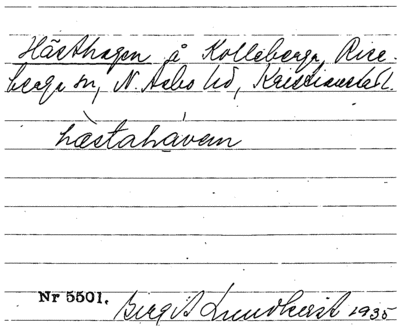 Hästhagen å Kolleberga, Rise-
berga sn, N. Åsbo hd, Kristianstads l.
hæstahávøn
Nr 5501. Birgit Lundkvist 1935